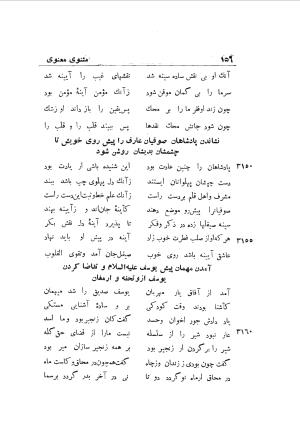 ۱۵۶ مثنوی معنوی
آنک او بی نقش ساده سینه شد نقشهای غیب را آیینه شد
سرما را بی گمان موقن شود زانک مؤمن آینهٔ مؤمن بود
چون زند او نقد ما را بر محک پس یقین را باز داند او ز شک
چون شود جانش محک نقدها پس ببیند قلب را و قلب را
نشاندن پادشاهان صوفیان عارف را پیش روی خویش تا
چشمشان بدیشان روشن شود
۳۱۵۰ پادشاهان را چنین عادت بود این شنیده باشی ار یادت بود
دست چپشان پهلوانان ایستند زانک دل پهلوی چپ باشد ببند
مشرف و اهل قلم بر دست راست زانک علم خط و ثبت این دست راست
صوفیان را پیش رو موضع دهند کاینهٔ جان‌اند و ز آیینه بهند
سینه صیقلها زده در ذکر و فکر تا پذیرد آینهٔ دل نقش بکر
۳۱۵۵ هر که او از صلب فطرت خوب زاد آینه در پیش او باید نهاد
عاشق آیینه باشد روی خوب صیقل جان آمد و تقوی القلوب
آمدن مهمان پیش یوسف علیه‌السلام و تقاضا کردن
یوسف ازو تحفه و ارمغان
آمد از آفاق یار مهربان یوسف صدیق را شد میهمان
کاشنا بودند وقت کودکی بر وسادهٔ آشنایی متکی
یاد دادش جور اخوان و حسد گفت کان زنجیر بود و ما اسد
۳۱۶۰ عار نبود شیر را از سلسله نیست ما را از قضای حق گله
شیر را بر گردن ار زنجیر بود بر همه زنجیرسازان میر بود
گفت چون بودی ز زندان و ز چاه گفت همچون در محاق و کاست ماه
در محاق ار ماه نو گردد دو تا نی در آخر بدر گردد بر سما